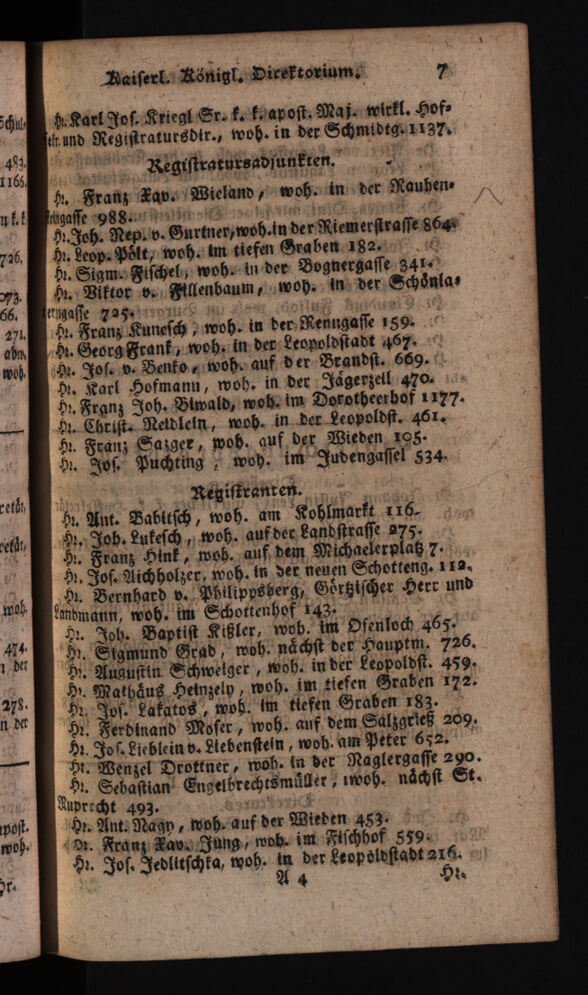 Kaiserl. Königl. Direktorium. 7
Hr. Karl Jos. Kriegl Sr. k. k. apost. Maj. wirkl. Hof-
sekr. und Registratursdir., woh. in der Schmidtg. 1137.
Registratursadjunkten.
Hr. Franz Xav. Wieland, woh. in der Rauhen-
steingasse 988.
Hr. Joh. Nep. v. Gurtner, woh. in der Riemerstrasse 864.
Hr. Leop. Pölt, woh. im tiefen Graben 182.
Hr. Sigm. Fischel, woh. in der Bognergasse 341.
Hr. Viktor v. Fillenbaum, woh. in der Schönla-
terngasse 725.
Hr. Franz Kunesch, woh. in der Renngasse 159.
Hr. Georg Frank, woh. in der Leopoldstadt 467.
Hr. Jos. v. Benko, woh. auf der Brandst. 669.
Hr. Karl Hofmann, woh. in der Jägerzeil 470.
Hr. Franz Joh. Biwald, woh. im Dorotheerhof 1177.
Hr. Christ. Neidlein, woh. in der Leopoldst. 461.
Hr. Franz Sazger, woh. auf der Wieden 105.
Hr. Jos. Puchting, woh. im Judengassel 534.
Registranten.
Hr. Ant. Babitsch, woh. am Kohlmarkt 116.
Hr. Joh. Lukesch, woh. auf der Landstrasse 275.
Hr. Franz Hink, woh. auf dem Michaelerplatz 7.
Hr. Jos. Aichholzer, woh. in der neuen Schotteng. 112.
Hr. Bernhard v. Philippsberg, Görtzischer Herr und
Landmann, woh. im Schottenhof 143.
Hr. Joh. Baptist Kißler, woh. im Ofenloch 465.
Hr. Sigmund Grad, woh. nächst der Hauptm. 726.
Hr. Augustin Schweiger, woh. in der Leopoldst. 459.
Hr. Mathäus Heinzely, woh. im tiefen Graben 172.
Hr. Jos. Lakatos, woh. im tiefen Graben 183.
Hr. Ferdinand Moser, woh. auf dem Salzgrieß 209.
Hr. Jos. Lieblein v. Liebenstein, woh. am Peter 652.
Hr. Wenzel Drottner, woh. in der Naglergasse 290.
Hr. Sebastian Engelbrechtsmüller, woh. nächst St.
Ruprecht 493.
Hr. Ant. Nagy, woh. auf der Wieden 453.
Hr. Franz Xav. Jung, woh. im Fischhof 559.
Hr. Jos. Jedlitschka, woh. in der Leopoldstadt 216.
A 4 Hr.